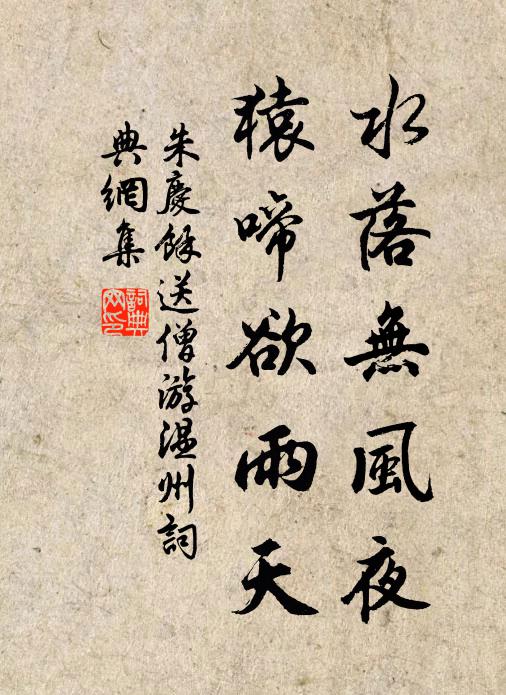 水落無風夜
猿啼欲雨天
朱慶餘送僧游溫州詞
典網集
詞典
网印